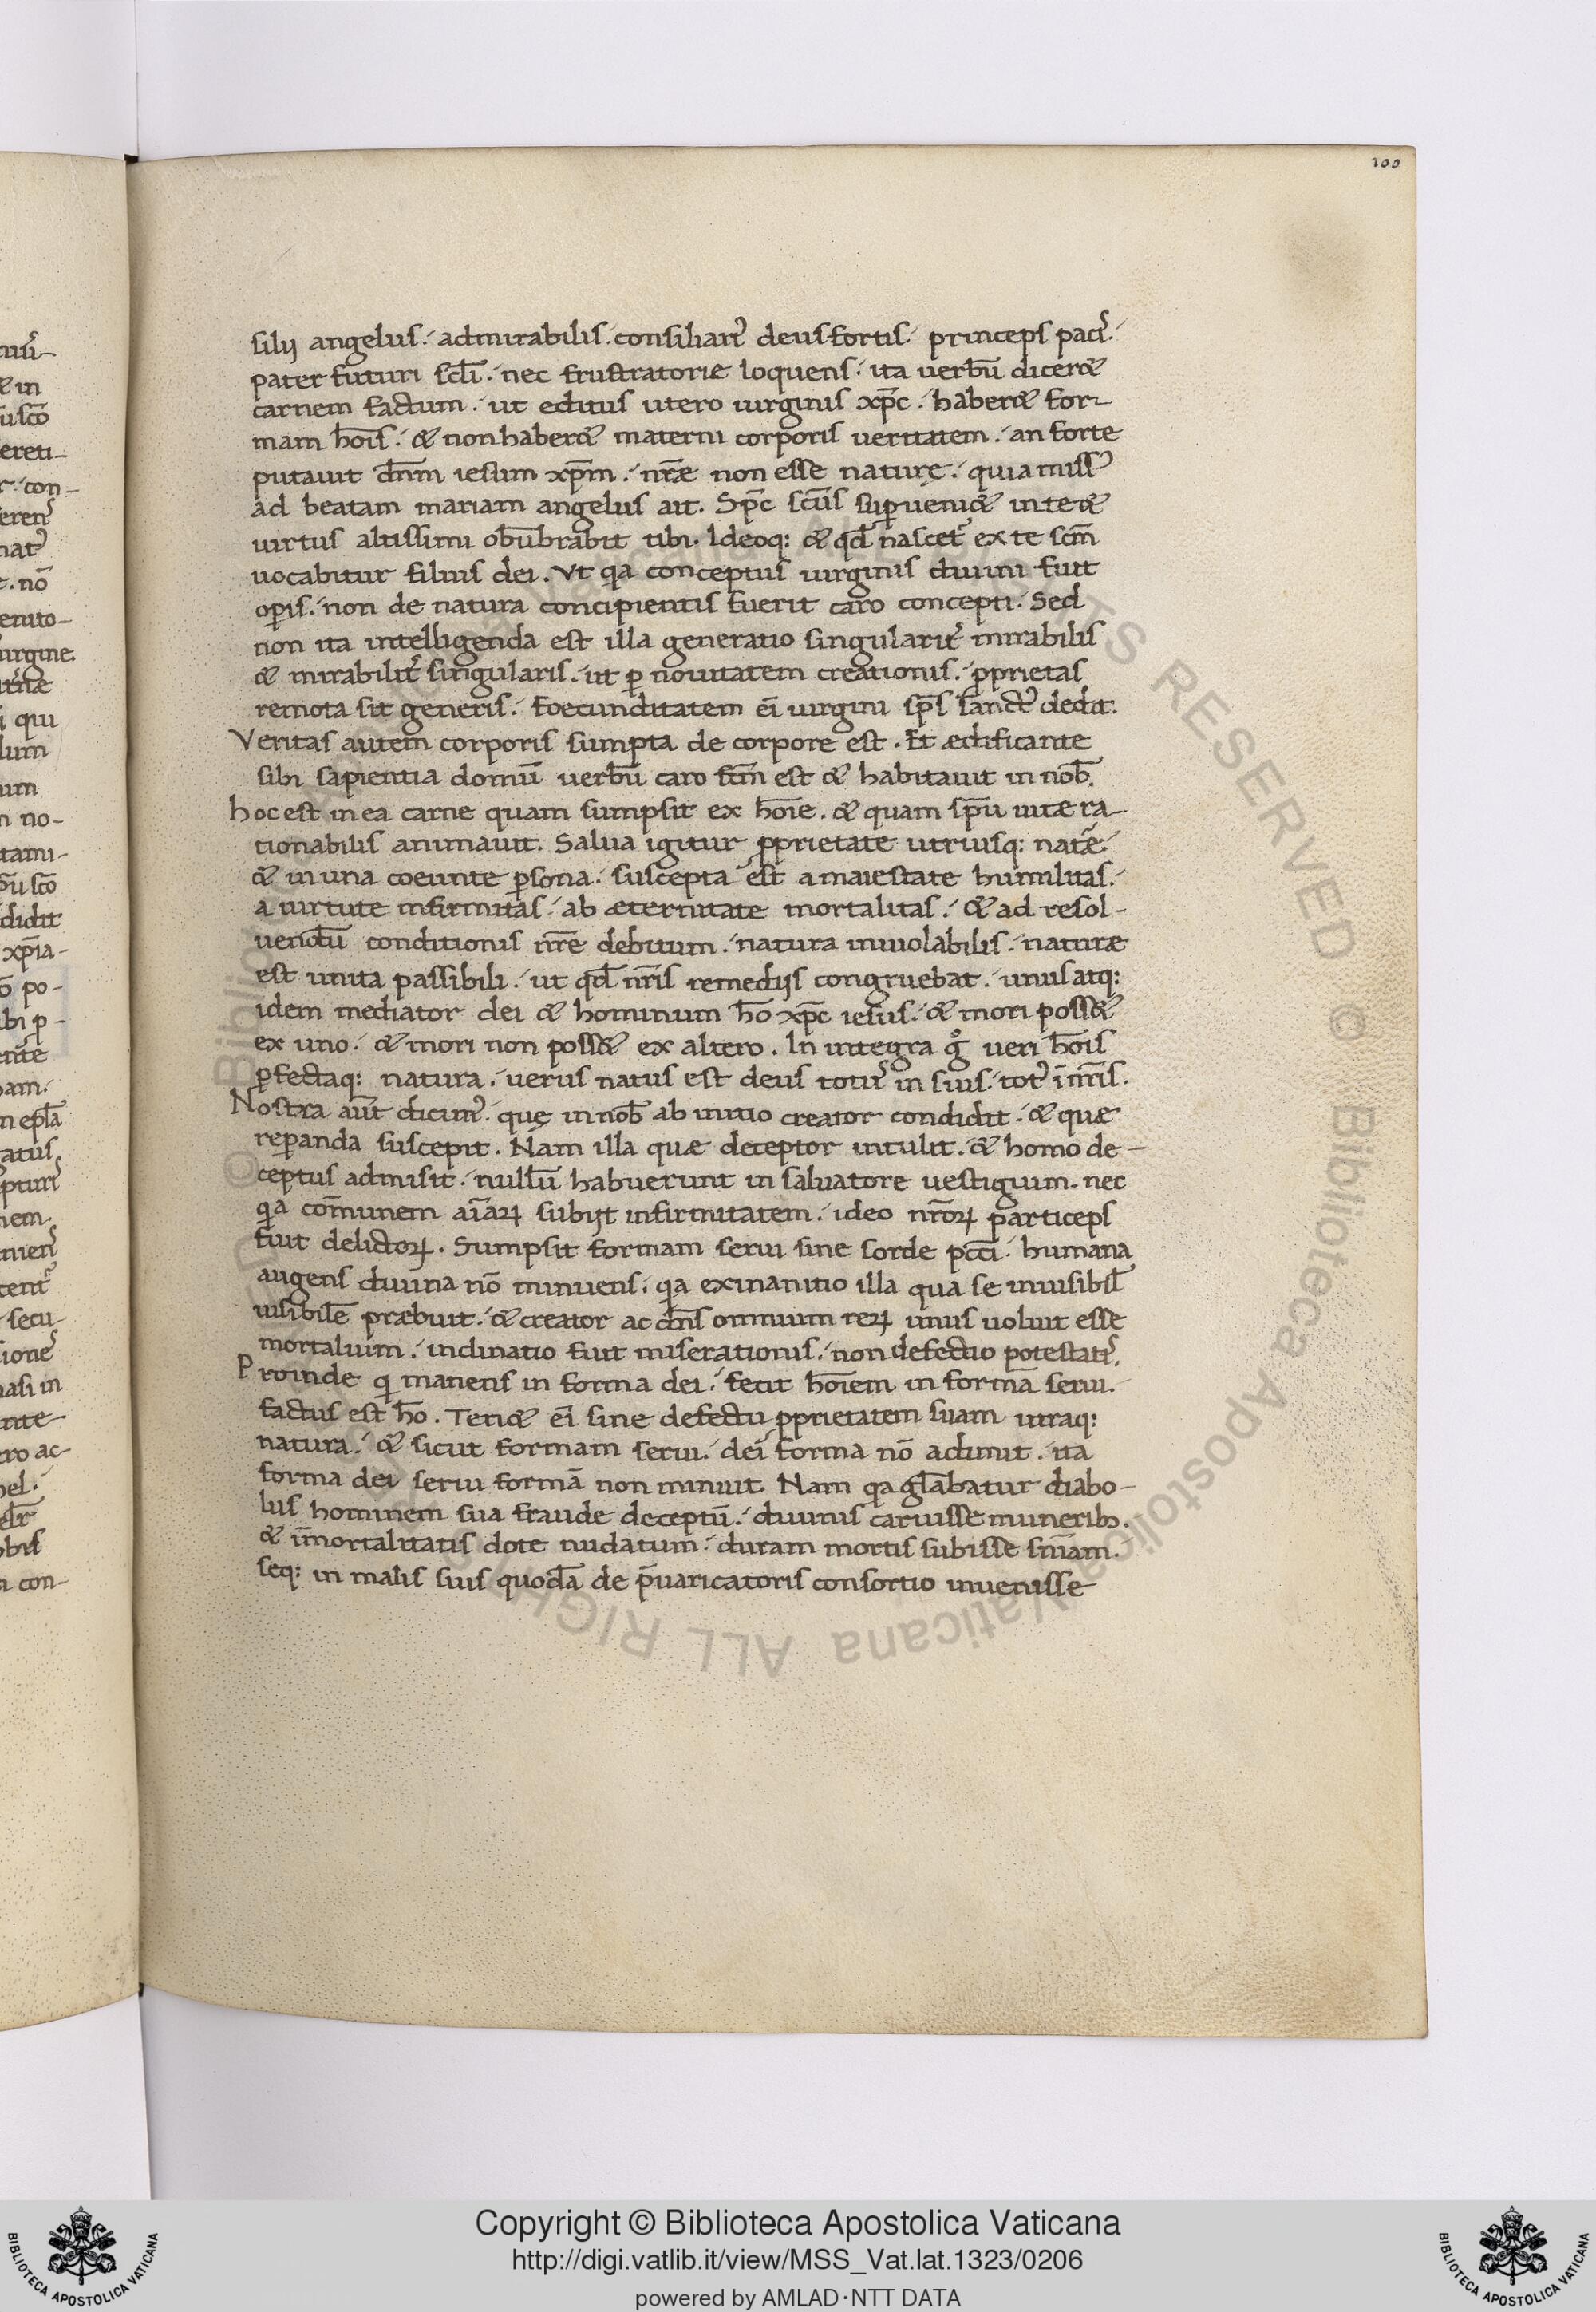 100
silij angelus. admirabilis. consiliari⁹ deus fortis. princeps paci⁹.
pater futuri scl̄i. nec frustratoriæ loquens. ita uerbū dicer&
carnem factum. ut editus utero uirginis xp̄c. haber& for-
mam hoīs. & non haber& materni corporis ueritatem. an forte
putauit dn̄m iesum xp̄m. nr̄æ non esse naturę. quia miss⁹
ad beatam mariam angelus ait. Sp̄c sc̄us sup̱ueni& in te &
uirtus altissimi obūbrabit tibi. Ideoq: & qd̄ nascet᷑ ex te scm̄
uocabitur filius dei. Vt qa conceptus uirginis diuini fuit
op̱is. non de natura concipientis fuerit caro concepti. Sed
non ita intelligenda est illa generatio singularit᷑ mirabilis
& mirabilit᷑ singularis. ut p̱ nouitatem creationis. pprietas
remota sit generis. foecunditatem ei̅ uirgini sp̄s sanct⁹ dedit.
Veritas autem corporis sumpta de corpore est. Et ædificante
sibi sapientia domū uerbū caro ftm̄ est & habitauit in nob̄.
hoc est in ea carne quam sumpsit ex hoīe. & quam sp̄u uitæ ra-
tionabilis animauit. Salua igitur pprietate utriusq: nat᷑e.
& in una coeunte p̱sona. suscepta est a maiestate humilitas.
a uirtute infirmitas. ab æternitate mortalitas. & ad resol-
uendū conditionis nr̄e debitum. natura inuiolabilis. naturæ
est unita passibili. ut qd̄ nr̄is remedijs congruebat. unus atq:
idem mediator dei & hominum ho̅ xp̄c iesus. & mori poss&
ex uno. & mori non poss& ex altero. In integra gͦ ueri hoīs
p̱fectaq: natura. uerus natus est deus tot⁹ in suis. tot⁹ ī nr̄is.
Nostra aūt dicim⁹. quę in nob̄ ab initio creator condidit. & quæ
rep̱anda suscepit. Nam illa quæ deceptor intulit. & homo de-
ceptus admisit. nullū habuerunt in saluatore uestigium. nec
qa com̄unem aīaꝝ subijt infirmitatem. ideo nr̄oꝝ particeps
fuit delictoꝝ. Sumpsit formam serui sine sorde pcc̄i. humana
augens diuina nō minuens. qa exinanitio illa qua se inuisibil̄
uisibilē præbuit. & creator ac dn̄s omnium reꝝ unus uoluit esse
mortalium. inclinatio fuit miserationis. non defectio potestati⁹.
Proinde qi manens in forma dei. fecit hoīem in forma serui.
factus est ho̅. Ten& ei̅ sine defectu pprietatem suam utraq:
natura. & sicut formam serui. dei forma nō adimit. ita
forma dei serui formā non minuit. Nam qa gl̄abatur diabo-
lus hominem sua fraude deceptū. diuinis caruisse munerib;.
& īmortalitatis dote nudatum. duram mortis subisse sn̄iam.
seq: in malis suis quodā de p̄uaricatoris consortio inuenisse
Copyright © Biblioteca Apostolica Vaticana
http://digi.vatlib.it/view/MSS_Vat.lat.1323/0206
powered by AMLAD·NTT DATA